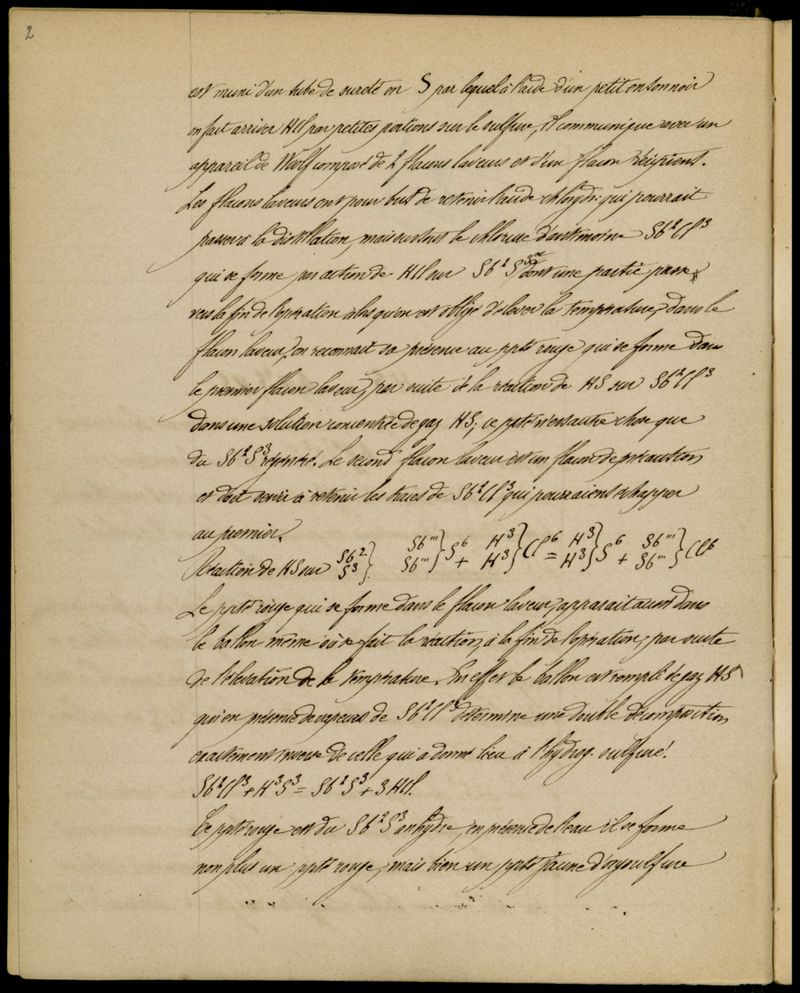 2
est muni d'un tube de sureté en S par lequel à l'aide d'un petit entonnoir
on fait arriver HCl par petites portions sur le sulfure, il communique avec un
appareil de Woolf composé de 2 flacons laveurs et d'un flacon récipient.
Les flacons laveurs ont pour but de retenir l'acide chlohydr. qui pourrait
passer à la distillation, mais surtout le chlorure d'antimoine Sb²Cl³
qui se forme par action de HCl sur Sb²S³ dont une partie passe
vers la fin de l'opération alors qu'on est obligé d'élever la température, dans le
flacon laveur, on reconnait sa présence au ppté rouge qui se forme dans
le premier flacon laveur, par suite de la réaction de HS sur Sb²Cl³
dans une solution concentrée de gaz HS; ce ppté n'est autre chose que
du Sb²S³ régénéré. Le second flacon laveur est un flacon de précaution
et doit servir à retenir les traces de Sb²Cl³ qui pourraient échapper
au premier.
Réaction de HS sur Sb² S³ } . Sb''' Sb''' } S⁶ + H³ H³ } Cl⁶ = H³ H³ } S⁶ + Sb''' Sb''' } Cl⁶
Le ppté rouge qui se forme dans le flacon laveur, apparait aussi dans
le ballon même où se fait la réaction, à la fin de l'opération, par suite
de l'élévation de la température. En effet le ballon est rempli de gaz HS
qui en présence de vapeurs de Sb²Cl³ détermine une double décomposition
exactement inverse de celle qui a donné lieu à l'hydrog. sulfuré!
Sb²Cl³ + H³S³ = Sb²S³ + 3HCl.
Ce ppté rouge est du Sb²S³ anhydre, en présence de l'eau il se forme
non plus un ppté rouge, mais bien un ppté jaune d'oxysulfure